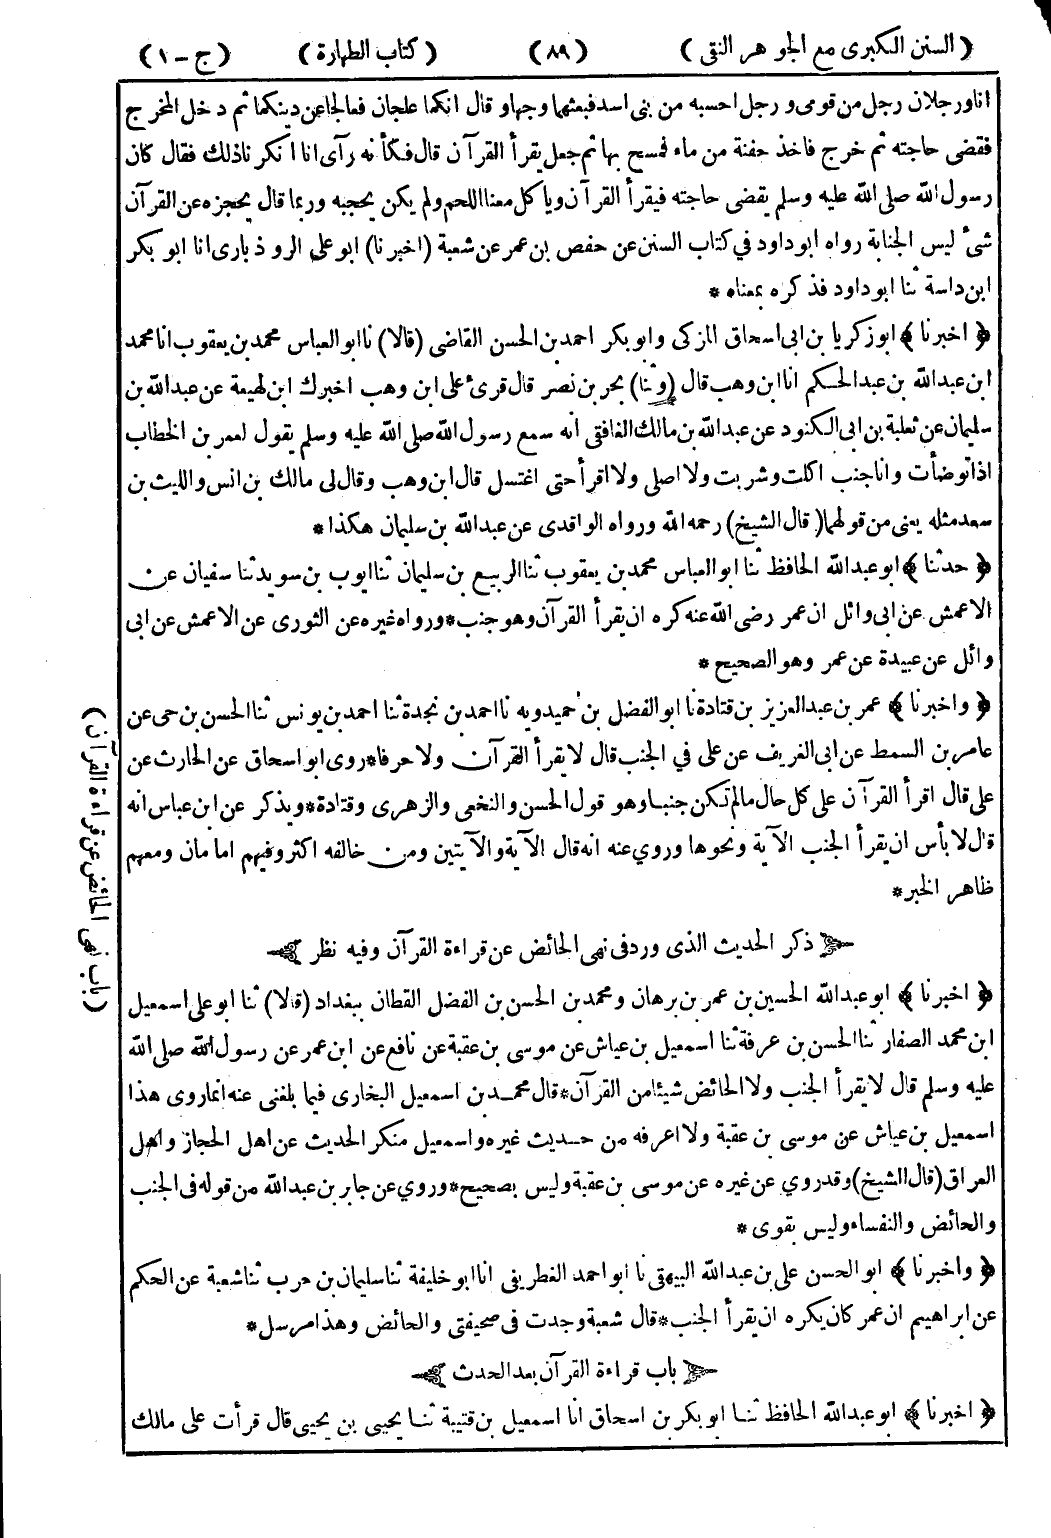 ( السنن الكبرى مع الجوهر النقى ) ( ٨٩ ) ( كتاب الطهارة ) ( ج - ١ )
انا ورجلان رجل من قومى ورجل احسبه من بنى اسد فبعثهما وجها وقال انكما علجان فعالجا عن دينكما ثم دخل المخرج
فقضى حاجته ثم خرج فاخذ حفنة من ماء فمسح بها ثم جعل يقرأ القرآن قال فكأنه رآى انا انكرنا ذلك فقال كان
رسول الله صلى الله عليه وسلم يقضى حاجته فيقرأ القرآن وياكل معنا اللحم ولم يكن يحجبه وربما قال يحجزه عن القرآن
شئ ليس الجنابة رواه ابو داود في كتاب السنن عن حفص بن عمر عن شعبة ( اخبرنا ) ابو على الروذبارى انا ابو بكر
ابن داسة ثنا ابو داود فذكره بمعناه *
﴿ اخبرنا ﴾ ابو زكريا بن ابى اسحاق المزكى وابو بكر احمد بن الحسن القاضى ( قالا ) نا ابو العباس محمد بن يعقوب انا محمد
ابن عبد الله بن عبد الحكم انا ابن وهب قال ( وثنا ) بحر بن نصر قال قرئ على ابن وهب اخبرك ابن لهيعة عن عبد الله بن
سليمان عن ثعلبة بن ابى الكنود عن عبد الله بن مالك الغافقى انه سمع رسول الله صلى الله عليه وسلم يقول لعمر بن الخطاب
اذا توضأت وانا جنب اكلت وشربت ولا اصلى ولا اقرأ حتى اغتسل قال ابن وهب وقال لى مالك بن انس والليث بن
سعد مثله يعنى من قولهما ( قال الشيخ ) رحمه الله ورواه الواقدى عن عبد الله بن سليمان هكذا *
﴿ حدثنا ﴾ ابو عبد الله الحافظ ثنا ابو العباس محمد بن يعقوب ثنا الربيع بن سليمان ثنا ايوب بن سويد ثنا سفيان عن
الاعمش عن ابى وائل ان عمر رضى الله عنه كره ان يقرأ القرآن وهو جنب * ورواه غيره عن الثورى عن الاعمش عن ابى
وائل عن عبيدة عن عمر وهو الصحيح *
﴿ واخبرنا ﴾ عمر بن عبد العزيز بن قتادة نا ابو الفضل بن خميدويه نا احمد بن نجدة ثنا احمد بن يونس ثنا الحسن بن حى عن
عامر بن السمط عن ابى الغريف عن على في الجنب قال لا يقرأ القرآن ولا حرفا * روى ابو اسحاق عن الحارث عن
على قال اقرأ القرآن على كل حال مالم تكن جنبا وهو قول الحسن والنخعى والزهرى وقتادة * ويذكر عن ابن عباس انه
قال لا بأس ان يقرأ الجنب الآية ونحوها وروي عنه انه قال الآية والآيتين ومن خالفه اكثر وفيهم امامان ومعهم
ظاهر الخبر *
ذكر الحديث الذى ورد فى نهى الحائض عن قراءة القرآن وفيه نظر
﴿ اخبرنا ﴾ ابو عبد الله الحسين بن عمر بن برهان ومحمد بن الحسن بن الفضل القطان ببغداد ( قالا ) ثنا ابو على اسمعيل
ابن محمد الصفار ثنا الحسن بن عرفة ثنا اسمعيل بن عياش عن موسى بن عقبة عن نافع عن ابن عمر عن رسول الله صلى الله
عليه وسلم قال لا يقرأ الجنب ولا الحائض شيئا من القرآن * قال محمد بن اسمعيل البخارى فيما بلغنى عنه انما روى هذا
اسمعيل بن عياش عن موسى بن عقبة ولا اعرفه من حديث غيره واسمعيل منكر الحديث عن اهل الحجاز واهل
العراق ( قال الشيخ ) وقد روي عن غيره عن موسى بن عقبة وليس بصحيح * وروي عن جابر بن عبد الله من قوله فى الجنب
والحائض والنفساء وليس بقوى *
﴿ واخبرنا ﴾ ابو الحسن على بن عبد الله البيهقى نا ابو احمد الغطريفى انا ابو خليفة ثنا سليمان بن حرب ثنا شعبة عن الحكم
عن ابراهيم ان عمر كان يكره ان يقرأ الجنب * قال شعبة وجدت فى صحيفتى والحائض وهذا مرسل *
باب قراءة القرآن بعد الحدث
﴿ اخبرنا ﴾ ابو عبد الله الحافظ ثنا ابو بكر بن اسحاق انا اسمعيل بن قتيبة ثنا يحيى بن يحيى قال قرأت على مالك
( باب نهى الحائض عن قراءة القرآن )